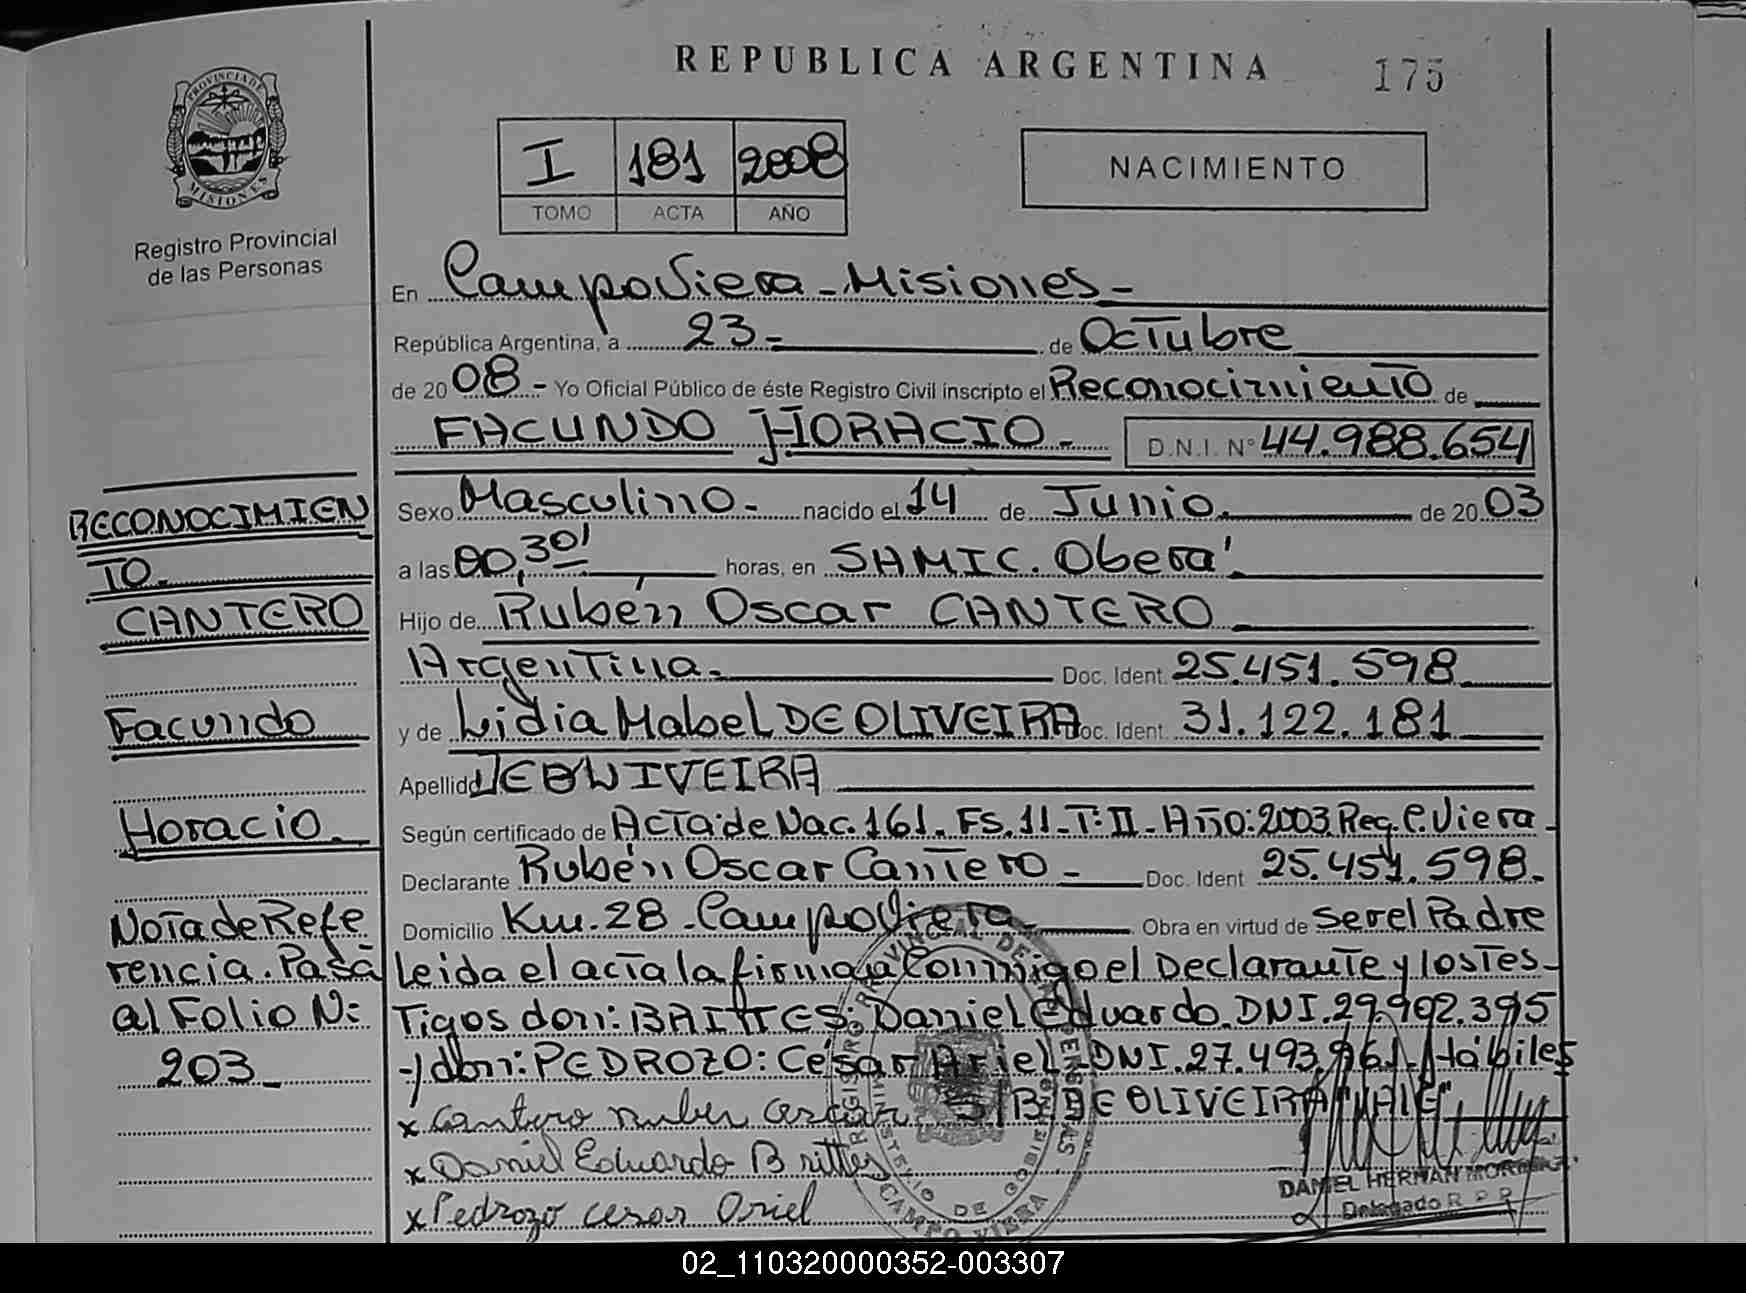 REPUBLICA ARGENTINA
175
PROVINCIA DE MISIONES
Registro Provincial
de las Personas
I 181 2008
TOMO ACTA AÑO
NACIMIENTO
En Campo Viera - Misiones -
República Argentina, a 23 - de Octubre
de 20 08 - Yo Oficial Público de éste Registro Civil inscripto el Reconocimiento de
FACUNDO HORACIO - D.N.I. N° 44.988.654
Sexo Masculino - nacido el 14 de Junio. de 20 03
a las 00,30' horas, en SAMIC. Oberá
Hijo de Rubén Oscar CANTERO
Argentina - Doc. Ident. 25.451.598
y de Lidia Mabel DE OLIVEIRA Doc. Ident. 31.122.181
Apellido
Según certificado de Acta de Nac. 161. Fs. 11 - T: II - Año: 2003. Reg. C. Viera -
Declarante Rubén Oscar Cantero - Doc. Ident 25.451.598.
Domicilio Km. 28 - Campo Viera Obra en virtud de ser el Padre
Leida el acta la firman Conmigo el Declarante y los Tes-
Tigos don: Daniel Eduardo. DNI. 29.902.395
y don: PEDROZO: César Ariel - DNI. 27.493.961 - Hábiles
S/B DE OLIVEIRA "VALE"
x Cantero Ruben Oscar
x Daniel Eduardo Brittes
x Pedrozo Cesar Ariel
RECONOCIMIEN
TO.
CANTERO
Facundo
Horacio -
Nota de Refe
rencia. Pasa
al Folio N:
203 -
REGISTRO PROVINCIAL DE LAS PERSONAS
MINISTERIO DE GOBIERNO
CAMPO VIERA
DANIEL HERNAN
Delegado R.P.P.
02_110320000352-003307